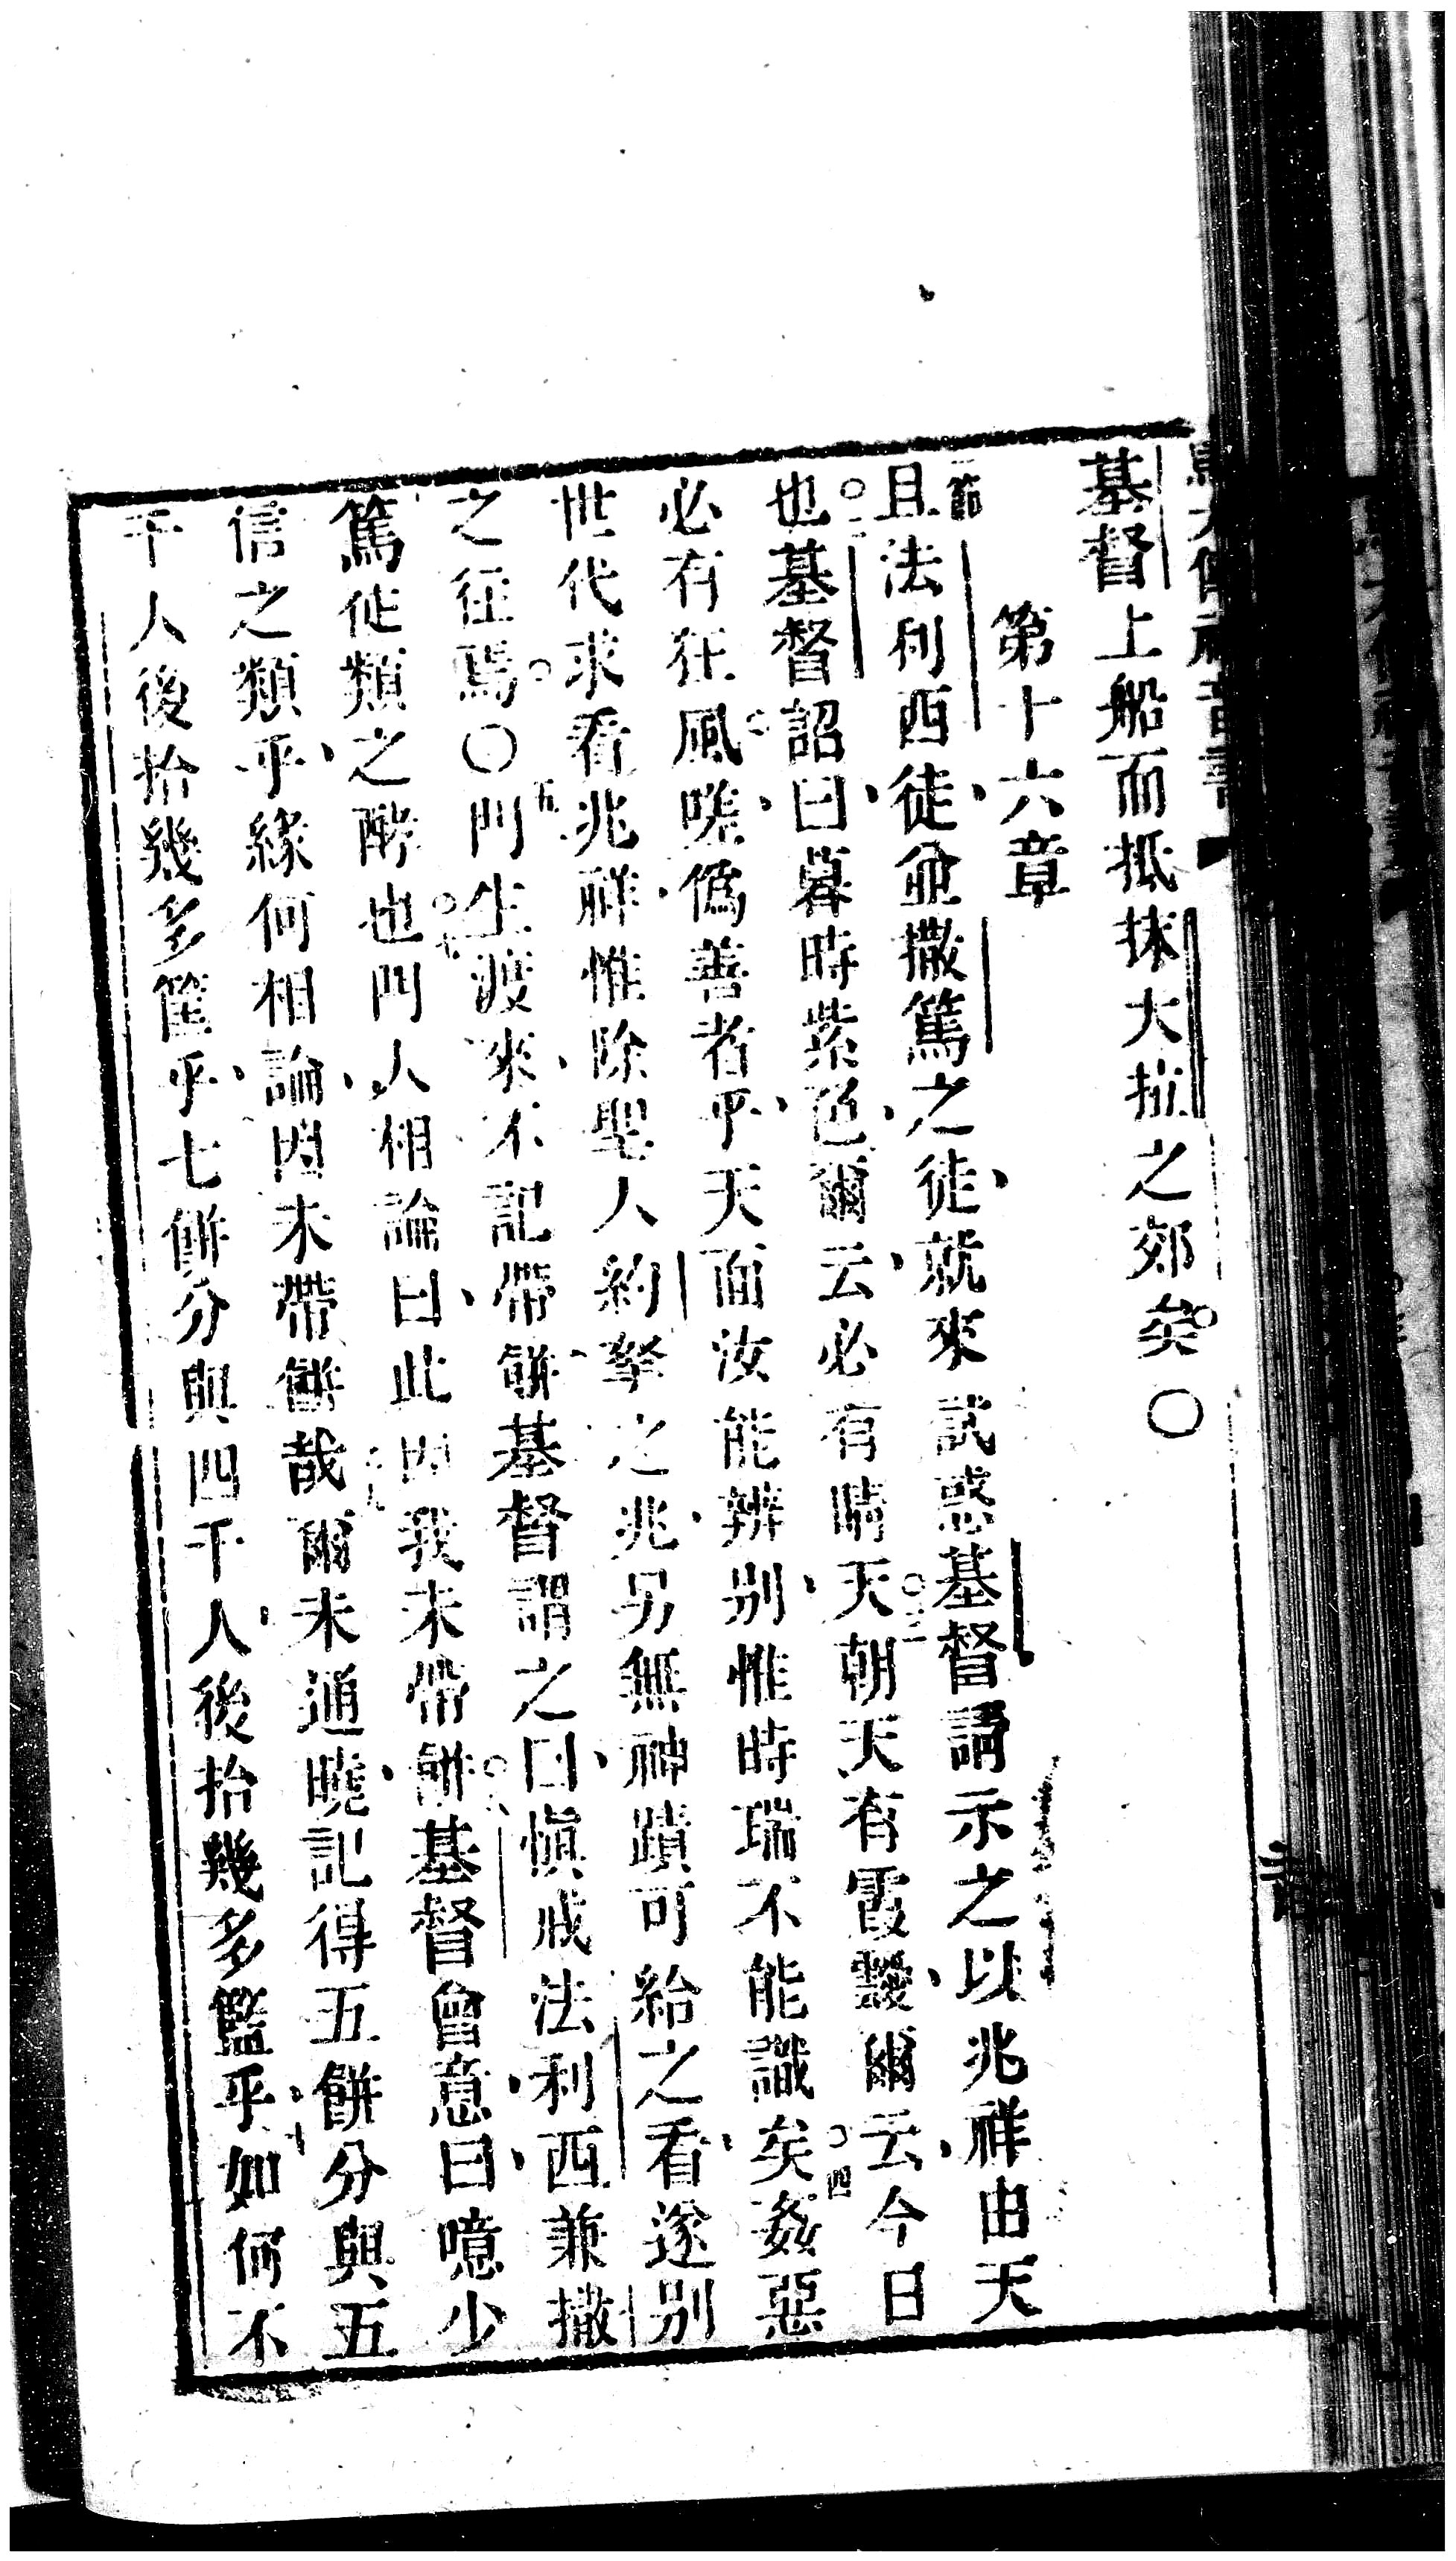 基督上船而抵抹大拉之郊矣○
第十六章
一節且法利西徒並撒篤之徒就來試惑基督請示之以兆祥由天
也○二基督詔曰暮時紫色爾云必有晴天○三朝天有霞靉爾云今日
必有狂風嗟僞善者乎天面汝能辨別惟時瑞不能識矣○四姦惡
世代求看兆祥惟除聖人約拏之兆另無神蹟可給之看遂別
之往焉○五門生渡來不記帶餅○六基督謂之曰愼戒法利西兼撒
篤徒類之酵也○七門人相論曰此因我未帶餅○八基督會意曰噫少
信之類乎緣何相論因未帶餅哉九爾未通曉記得五餅分與五
千人後拾幾多筐乎十七餅分與四千人後拾幾多籃乎十一如何不